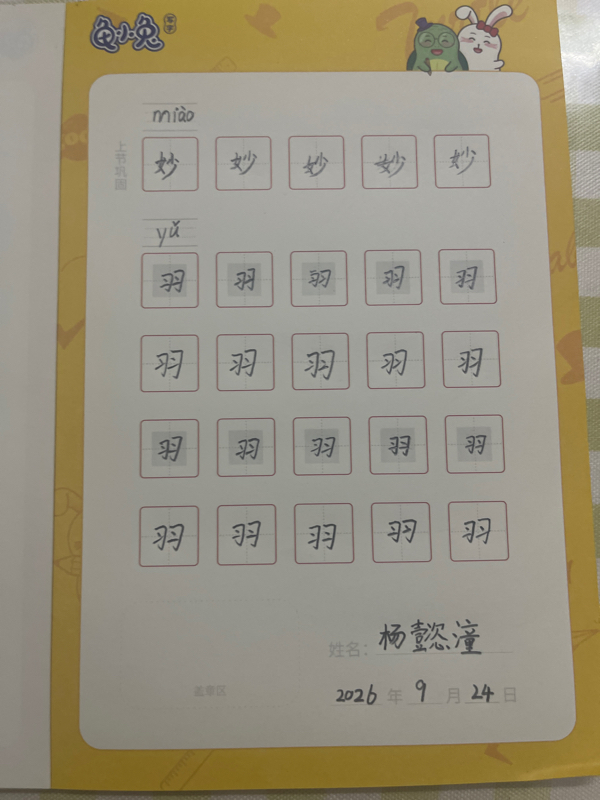 龟小兔
写字
miào
上节巩固
妙 妙 妙 妙 妙
yǔ
羽 羽 羽 羽 羽
羽 羽 羽 羽 羽
羽 羽 羽 羽 羽
羽 羽 羽 羽 羽
姓名: 杨懿潼
盖章区
2026 年 9 月 24 日